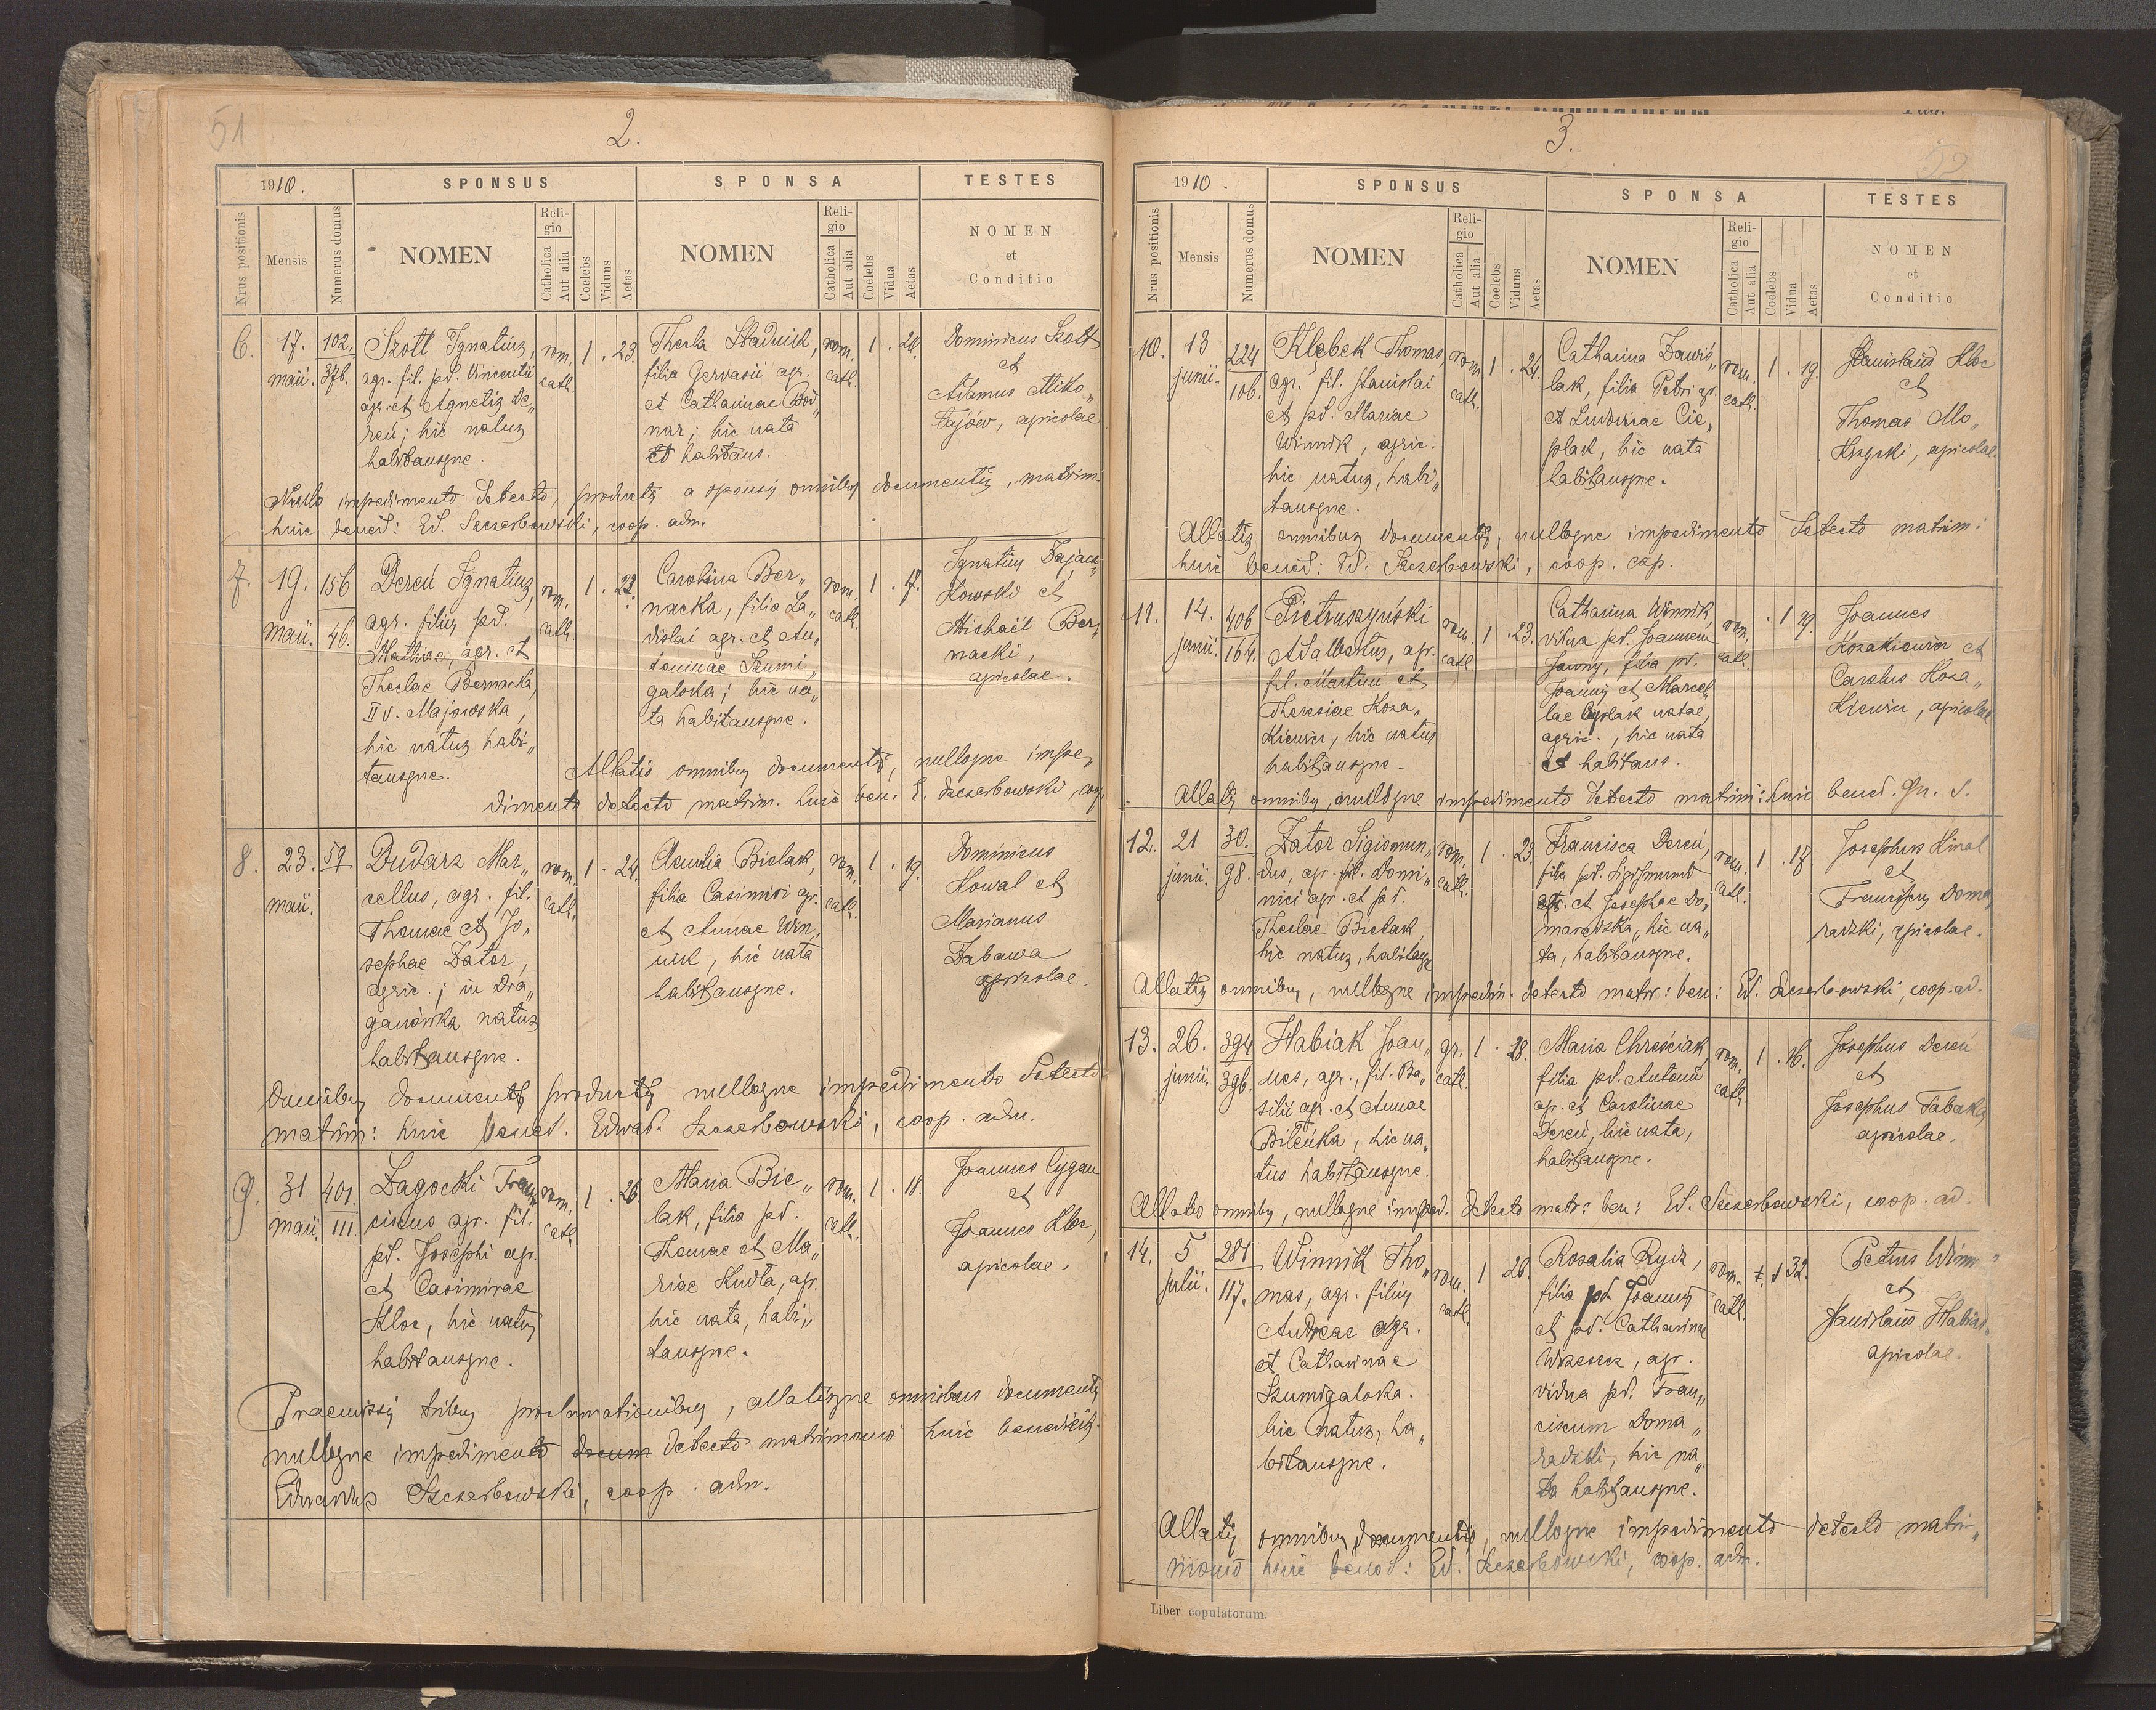 51
2.
1910.
SPONSUS
SPONSA
TESTES
Nrus positionis
Mensis
Numerus domus
NOMEN
Religio
Catholica
Aut alia
Coelebs
Viduus
Aetas
NOMEN
Religio
Catholica
Aut alia
Coelebs
Vidua
Aetas
NOMEN
et
Conditio
6.
17.
maii.
102.
376.
Szott Ignatius,
agr. fil. pd. Vincentii
agr. et Agnetis De„
reń; hic natus
habitansque.
rom.
cath.
1 . 23.
Thecla Stadnik,
filia Gervasii agr.
et Catharinae Bed„
nar; hic nata
et habitans.
rom.
cath.
1 . 20.
Dominicus Szott
et
Adamus Miko„
łajów, agricolae
Nullo impedimento detecto, productis a sponsis omnibus documentis, matrim.
huic bened: Ed. Szczerbowski, coop. adm.
7.
19.
maii.
156
46.
Dereń Ignatius,
agr. filius pd.
Mathiae, agr. et
Theclae Bernacka,
II v. Majowska,
hic natus habi„
tansque.
rom.
cath.
1 . 22.
Carolina Ber„
nacka, filia La„
dislai agr. et An„
toninae Szumi„
galska; hic na„
ta habitansque.
rom.
cath.
1 . 17.
Ignatius Zającz„
kowski et
Michaël Ber„
nacki,
agricolae.
Allatis omnibus documentis, nulloque impe„
dimento detecto matrim. huic ben. E. Szczerbowski, coop
8.
23.
maii.
57
Dudarz Mar„
cellus, agr. fil.
Thomae et Jo„
sephae Zator,
agric.; in Dra„
ganówka natus
habitansque.
rom.
cath.
1 . 24.
Aurelia Bielak,
filia Casimiri agr.
et Annae Win„
nik, hic nata
habitansque.
rom.
cath.
1 . 19.
Dominicus
Kowal et
Marianus
Zabawa
agricolae.
Omnibus documentis productis nulloque impedimento detecto
matrim: huic bened. Edward. Szczerbowski, coop. adm.
9.
31
maii.
401.
111.
Zagocki Fran„
ciscus agr. fil.
pd. Josephi agr.
et Casimirae
Kloc, hic natus
habitansque.
rom.
cath.
1 . 26
Maria Bie„
lak, filia pd.
Thomae et Ma„
riae Kudła, agr.
hic nata, habi„
tansque.
rom.
cath.
1 . 18.
Joannes Cygan
et
Joannes Kloc,
agricolae.
Praemissis tribus proclamationibus, allatisque omnibus documentis
nulloque impedimento docum detecto matrimonio huic benedixit
Edwardus Szczerbowski, coop. adm.
3.
52
1910.
SPONSUS
SPONSA
TESTES
Nrus positionis
Mensis
Numerus domus
NOMEN
Religio
Catholica
Aut alia
Coelebs
Viduus
Aetas
NOMEN
Religio
Catholica
Aut alia
Coelebs
Vidua
Aetas
NOMEN
et
Conditio
10.
13
junii.
224
106.
Klębek Thomas,
agr. fil. Stanislai
et pd. Mariae
Winnik, agric.
hic natus, habi„
tansque.
rom
cath.
1 . 24.
Catharina Dawiś„
lak, filia Petri agr.
et Ludovicae Cie„
plak, hic nata
habitansque.
rom.
cath.
1 . 19.
Stanislaus Kloc
et
Thomas Mo„
krzycki, agricolae.
Allatis omnibus documentis, nulloque impedimento detecto matrim:
huic bened: Ed. Szczerbowski, coop. exp.
11.
14.
junii.
406
164.
Pietruszyński
Adalbertus, agr.
fil. Martini et
Theresiae Koza„
kiewicz, hic natus
habitansque.
rom.
cath
1 . 23.
Catharina Winnik,
vidua pd. Joannem
Jawny, filia pd.
Joannis et Marcel„
lae Cieplak natae,
agric., hic nata
et habitans.
rom.
cath.
. 1 29.
Joannes
Kozakiewicz et
Carolus Koza„
kiewicz, agricolae
Allatis omnibus, nulloque impedimento detecto matrim: huic bened. Qu. S.
12.
21
junii.
30.
98.
Zator Sigismun„
dus, agr. fil. Domi„
nici agr. et pd.
Theclae Bielak,
hic natus, habitansque
rom.
cath.
1 . 23.
Francisca Dereń,
filia pd. Sigismundi
agr. et Josephae Do„
maradzka, hic na„
ta, habitansque.
rom.
cath.
1 . 17
Josephus Kinal
et
Franciscus Doma
radzki, agricolae.
Allatis omnibus, nulloque impedim. detecto matr: ben: Ed. Szczerbowski, coop. ad.
13.
26.
junii.
394
396.
Habiak Joan„
nes, agr., fil. Ba„
silii agr. et Annae
Bileńka, hic na„
tus habitansque.
gr.
cath.
1 . 28.
Maria Chreściak,
filia pd. Antonii
agr. et Carolinae
Dereń, hic nata,
habitansque.
rom.
cath
1 . 26.
Josephus Dereń
et
Josephus Tabaka,
agricolae.
Allatis omnibus, nulloque imped. detecto matr: ben: Ed. Szczerbowski, coop. ad.
14.
5
julii.
281
117.
Winnik Tho„
mas, agr. filius
Andreae agr.
et Catharinae
Szumigalska.
hic natus, ha„
bitansque.
rom.
cath.
1 28.
Rosalia Ryda,
filia pd. Joannis
et pd. Catharinae
Wrzeszcz, agr.
vidua pd. Fran„
ciscum Doma„
radzki, hic na„
ta habitansque.
rom.
cath.
1 32.
Petrus Winn
et
Stanislaus Habiak
agricolae.
Allatis omnibus documentis, nulloque impedimento detecto matri„
monio huic bened: Ed. Szczerbowski, coop. adm.
Liber copulatorum.